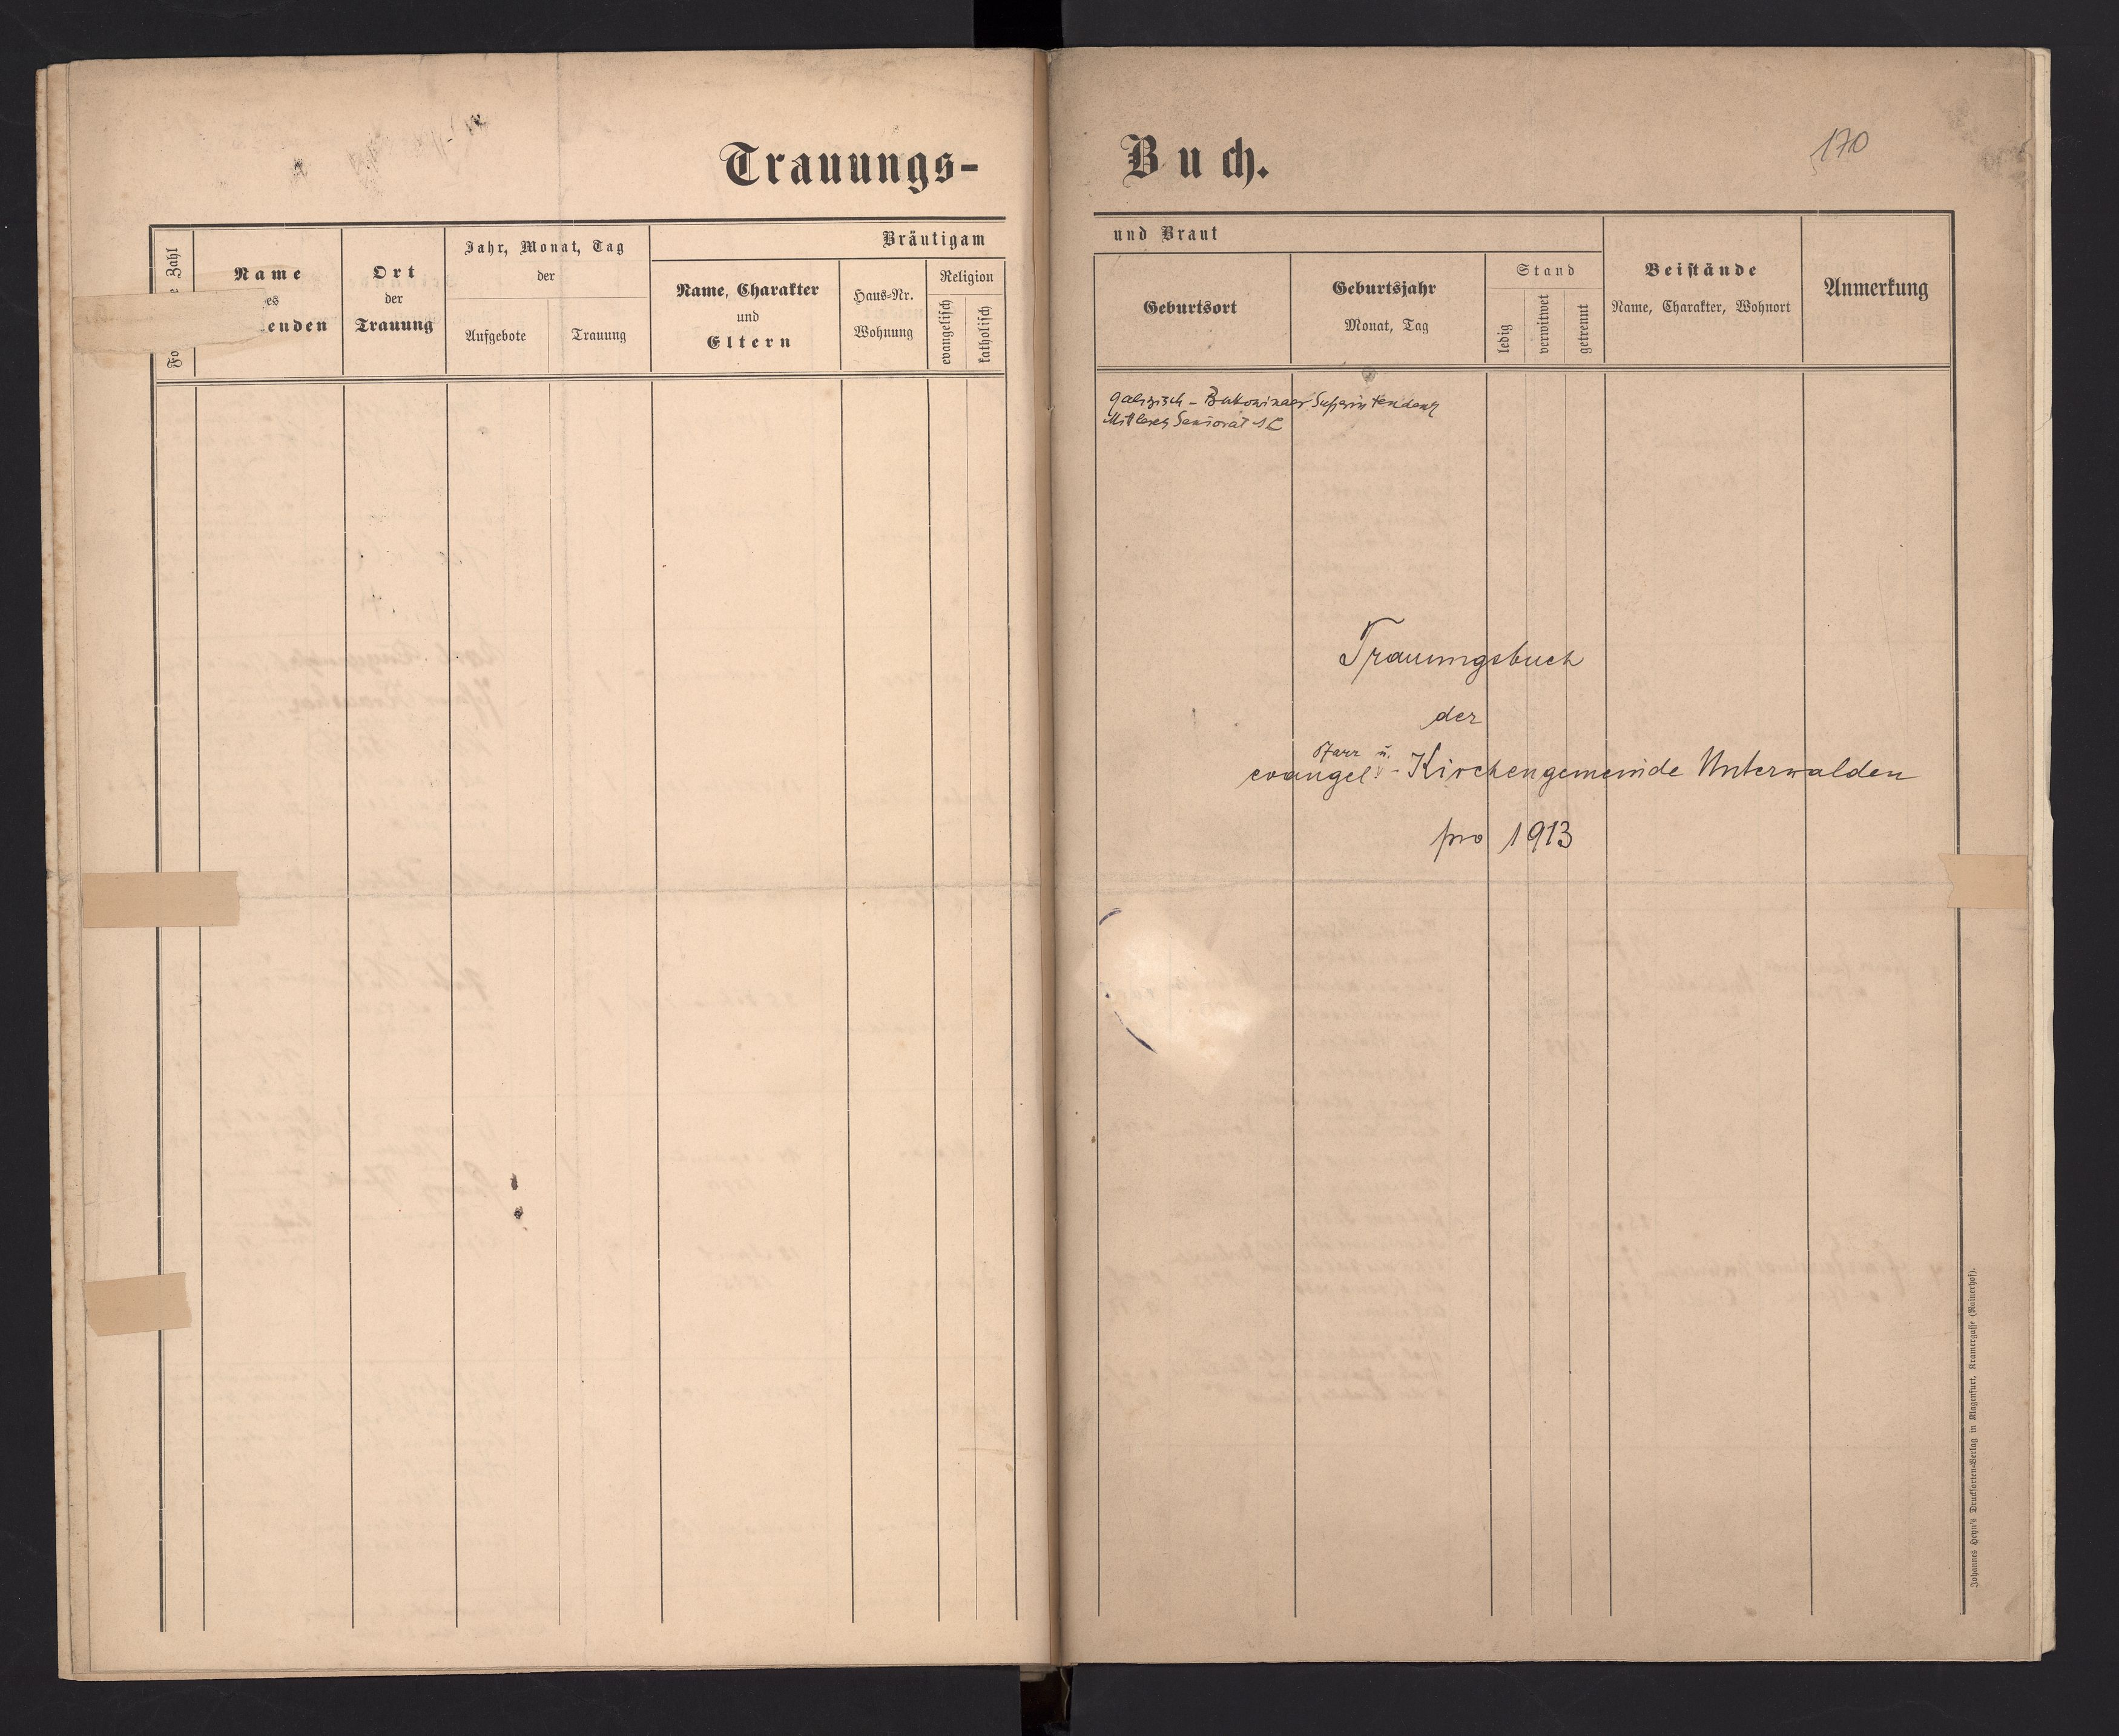 Trauungs-
Buch.
170
Zahl
Name
es
enden
Ort
der
Trauung
Jahr, Monat, Tag
der
Aufgebote
Trauung
Bräutigam
Name, Charakter
und
Eltern
Haus-Nr.
Wohnung
Religion
evangelisch
katholisch
und Braut
Geburtsort
Geburtsjahr
Monat, Tag
Stand
ledig
verwitwet
getrennt
Beistände
Name, Charakter, Wohnort
Anmerkung
galizisch - Bukowinaer Superintendenz
Mittleres Seniorat
Trauungsbuch
der
Pfarr u.
evangel. - Kirchengemeinde Unterwalden
pro 1913
Johannes Heyn's Drucksorten-Verlag in Klagenfurt, Kramergasse (Rainerhof).